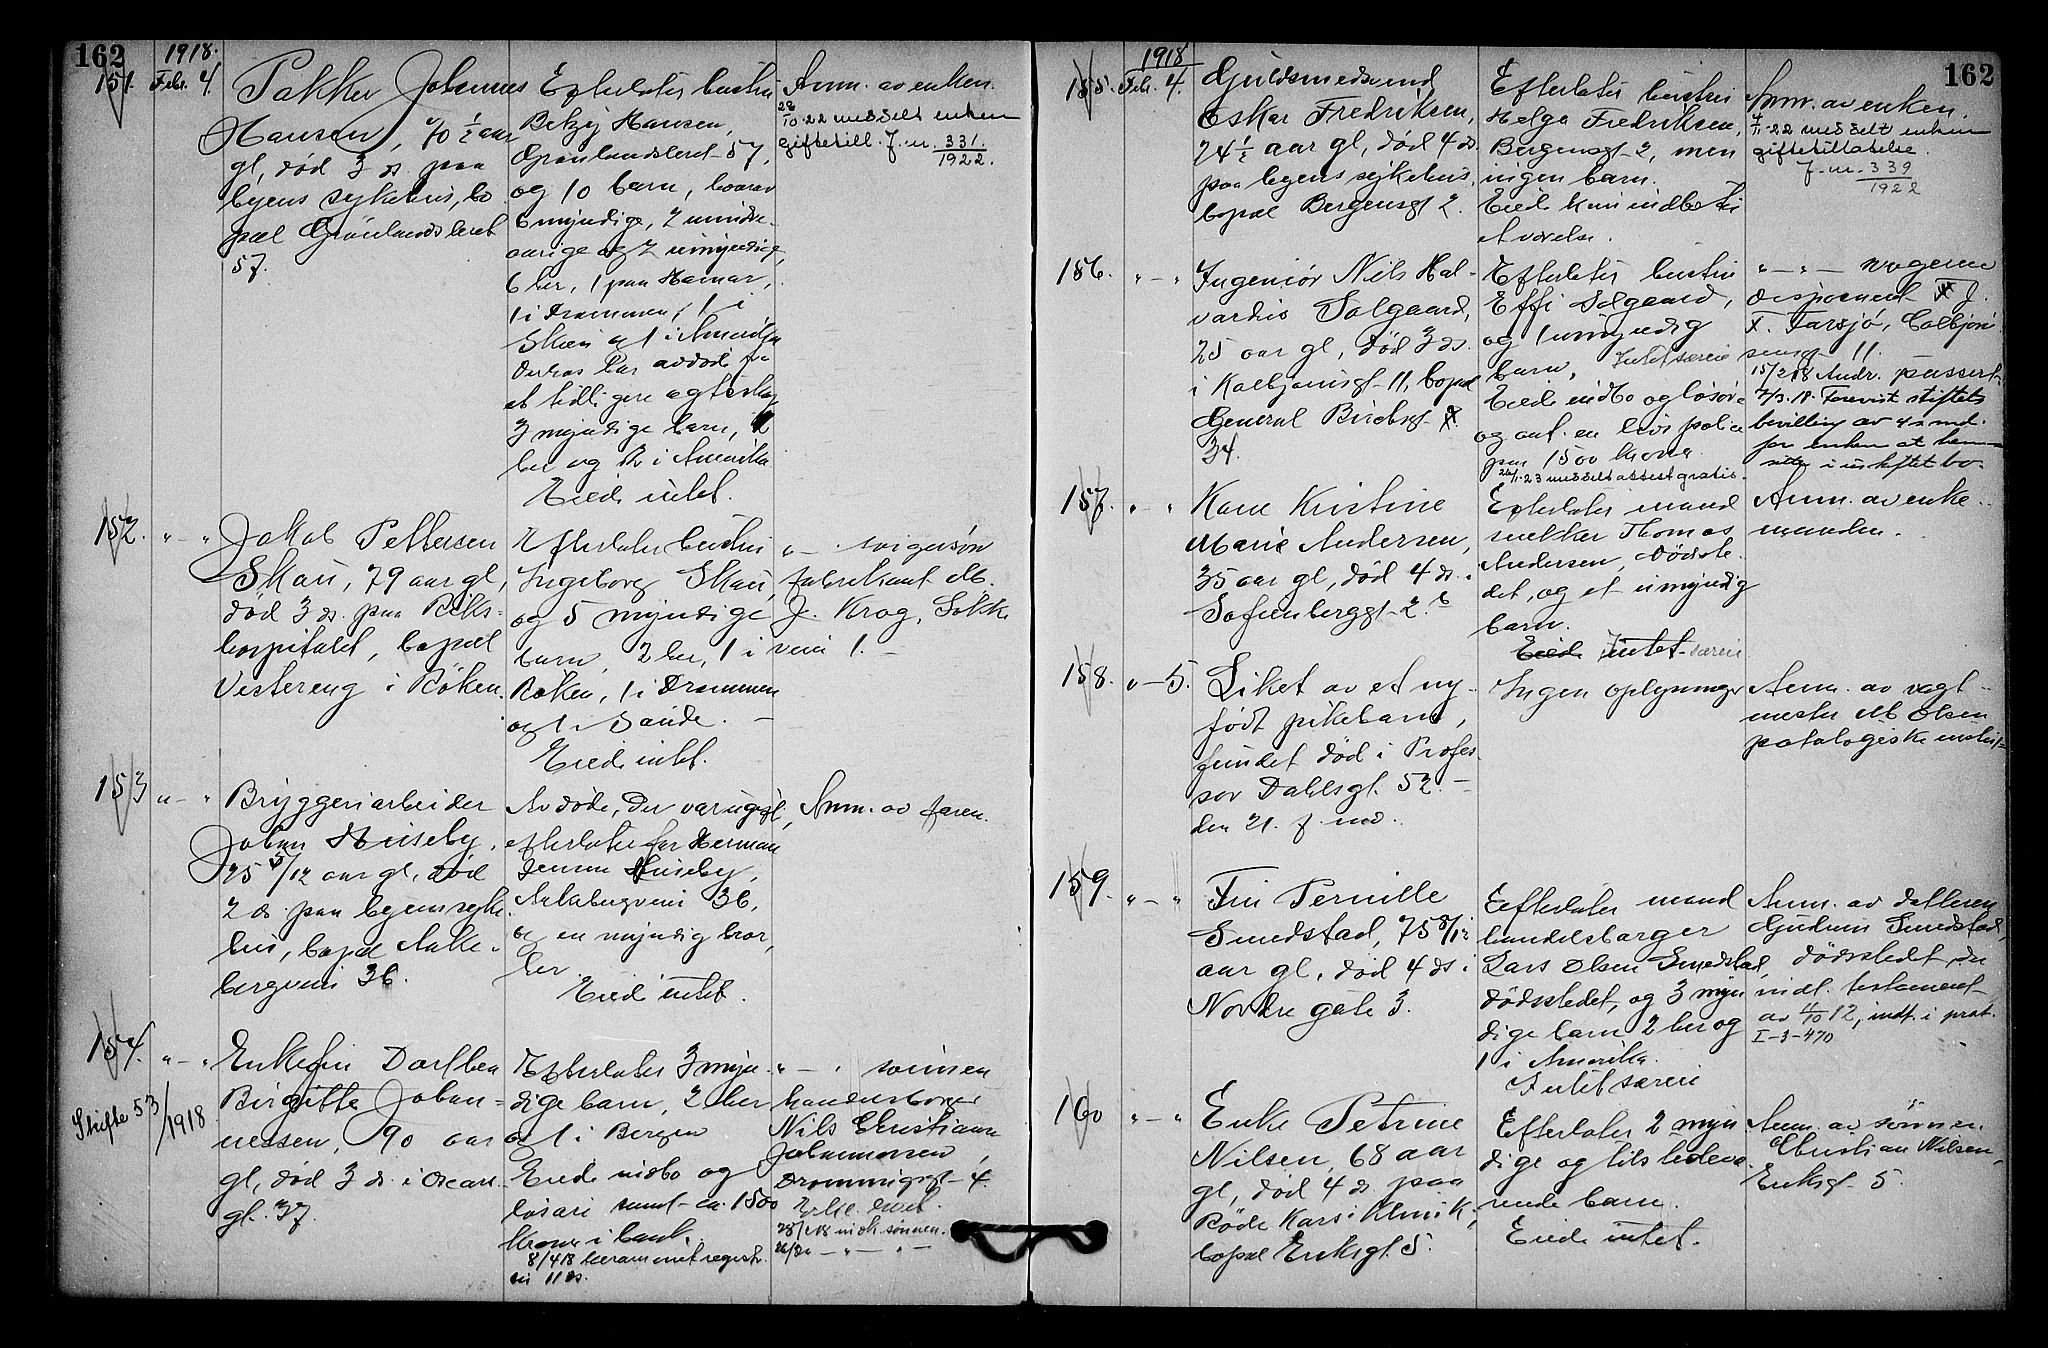 162
1918.
151. Febr. 4.
Pakker Johannes
Hansen, 70 1/2 aar
gl, død 3 ds. paa
byens sykehus, bo
pæl Grønlandsleret
57.
Efterlater hustru
Betzy Hansen,
Grønlandsleret 57,
og 10 barn, hvorav
6 myndige, 2 mindre-
aarige og 2 umyndige,
6 her, 1 paa Hamar,
1 i Drammen, 1 i
Skien og 1 i Amerika
Derhos har avdøde fra
et tidligere egteskap
3 myndige barn,
her og i Amerika
Eiede intet.
Anm. av enken.
28/10-22 meddelt enken
giftetill. J. nr. 331/1922.
152. " - "
Jakob Pettersen
Skau, 79 aar gl,
død 3 ds. paa Riks-
hospitalet, bopæl
Vestereng i Røken.
Efterlater hustru
Ingeborg Skau,
og 5 myndige
barn, 2 her, 1 i
Røken, 1 i Drammen
og 1 i Sande. -
Eiede intet.
" - svigersøn
fabrikant M.
J. Krog, Sokke
veien 1. -
153 " - "
Bryggeriarbeider
Johan Huseby,
25 5/12 aar gl, død
2 ds. paa byens syke
hus, bopæl Anke-
bergveien 36.
Avdøde, der var ugift,
efterlater far Herman
Jensen Huseby,
Ankebergveien 36,
og en myndig bror,
her.
Eiede intet.
Anm. av faren.
154. " - "
Skifte 53/1918
Enkefru Dorthea
Birgitte Johan-
nessen, 90 aar
gl, død 3 ds. i Oscars
gt. 37.
Efterlater 3 myn-
dige barn, 2 her
og 1 i Bergen
Eiede indbo og
løsøre samt ca. 1500
kroner i bank.
8/4 18 boet registr.
11 ds.
" - " sønnen
Nils Christian
Johannessen,
Dronningsgt. 4.
sønnen.
162
1918
155. Febr. 4.
Guldsmedsvend
Oskar Fredriksen,
24 1/2 aar gl, død 4 ds.
paa byens sykehus,
bopæl Bergensgt 2.
Efterlater hustru
Helga Fredriksen,
Bergensgt. 2, men
ingen barn.
Eiede kun indbo til
et værelse.
Anm. av enken.
4/11-22 meddelt enken
giftetillatelse.
J. nr. 339/1922
156. " - "
Ingeniør Nils Hal-
vardus Solgaard,
25 aar gl, død 3 ds.
i Kolbjørnsgt. 11, bopæl
General Birchsgt.
34.
Efterlater hustru
Effi Solgaard,
og 1 umyndig
barn, Intet særeie
Eiede indbo og løsøre
og ant. en livspolice
paa 1500 kroner
24/1-23 meddelt attest gratis.
" - " - svogeren
disponent J.
F. Farsjø, Kolbjørn
sensgt 11.
15/2 18 Andr. passert.
7/3. 18. Forevist stiftets
bevilling av 4 s md.
for enken at hen-
sitte i uskiftet bo.
157. " - "
Karen Kristine
Marie Andersen,
35 aar gl, død 4 ds. i
Sofienberggt. 2 b
Efterlater mand
snekker Thomas
Andersen, dødste-
det, og et umyndig
barn.
Eiede Intet særeie
Anm. av enke-
manden.
158. " - 5.
Liket av et ny-
født pikebarn,
fundet død i Profes-
sor Dahlsgt. 52. -
den 21. f. md..
Ingen oplysninger
Anm. av vagt-
mester M Olsen
patologiske institut
159. " - "
Fru Pernille
Smedstad, 75 8/12
aar gl, død 4 ds i
Nordre gate 3.
Eefterlater mand
handelsborger
Lars Olsen Smedstad,
dødsstedet, og 3 myn
dige barn 2 her og
1 i Amerika.
Intet særeie
Anm. av datteren
Gudrun Smedstad,
dødsstedet, der
indl. testament
av 4/10 12, indf. i prot.
I-3-470
160 " - "
Enke Petrine
Nilsen, 68 aar
gl, død 4 ds paa
Røde Kors i Klinik,
bopæl Eriksgt. 5.
Efterlater 2 myn
dige og tilstedevæ-
rende barn.
Eiede intet.
Anm. av sønnen
Christian Nilsen,
Eriksgt. 5.